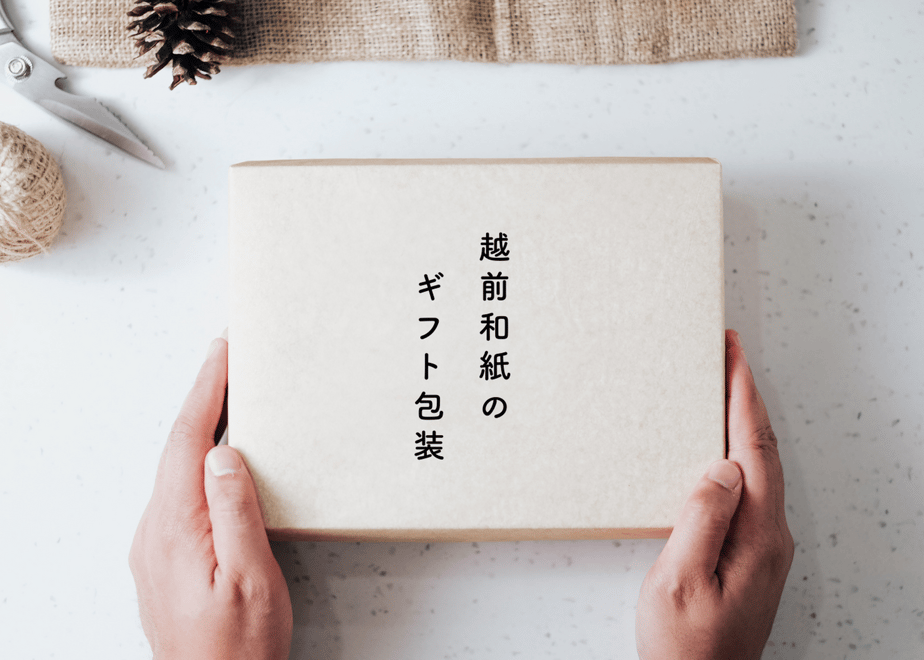 越前和紙の
ギフト包装